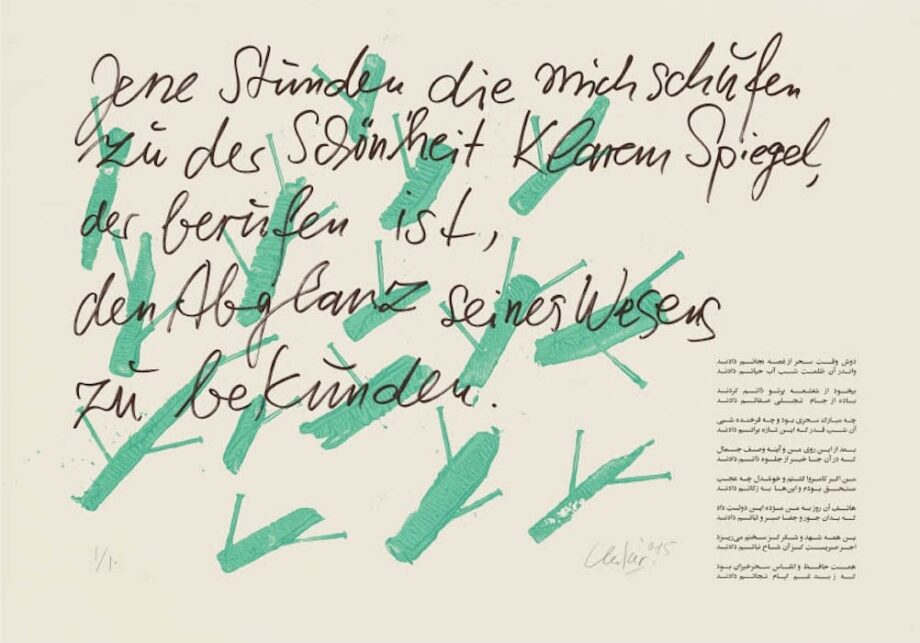 Jene Stunden die mich schufen
zu der Schönheit Klarem Spiegel,
der berufen ist,
den Abglanz seines Wesens
zu bekunden.
دوش وقت سحر از غصه نجاتم دادند
واندر آن ظلمت شب آب حیاتم دادند
بیخود از شعشعه پرتو ذاتم کردند
باده از جام تجلی صفاتم دادند
چه مبارک سحری بود و چه فرخنده شبی
آن شب قدر که این تازه براتم دادند
بعد از این روی من و آینه وصف جمال
که در آن جا خبر از جلوه ذاتم دادند
من اگر کامروا گشتم و خوشدل چه عجب
مستحق بودم و این‌ها به زکاتم دادند
هاتف آن روز به من مژده این دولت داد
که بدان جور و جفا صبر و ثباتم دادند
این همه شهد و شکر کز سخنم می‌ریزد
اجر صبریست کز آن شاخ نباتم دادند
همت حافظ و انفاس سحرخیزان بود
که ز بند غم ایام نجاتم دادند
1/1.
'15